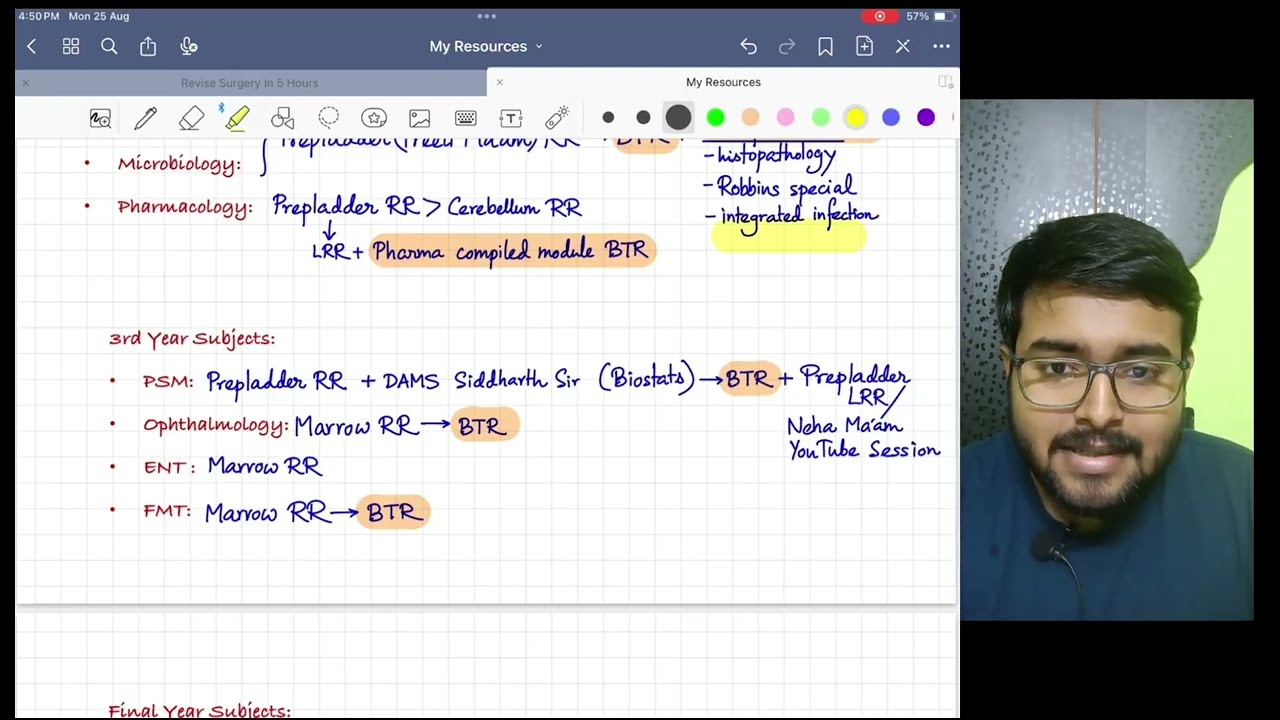 4:50 PM Mon 25 Aug
57%
My Resources
Revise Surgery In 5 Hours
My Resources
• Microbiology: Prepladder (Preeti Ma'am) RR BTR
- histopathology
- Robbins special
- integrated infection
• Pharmacology: Prepladder RR > Cerebellum RR
↓
LRR + Pharma compiled module BTR
3rd Year Subjects:
• PSM: Prepladder RR + DAMS Siddharth Sir (Biostats) → BTR + Prepladder
LRR /
Neha Ma'am
YouTube Session
• Ophthalmology: Marrow RR → BTR
• ENT: Marrow RR
• FMT: Marrow RR → BTR
Final Year Subjects: